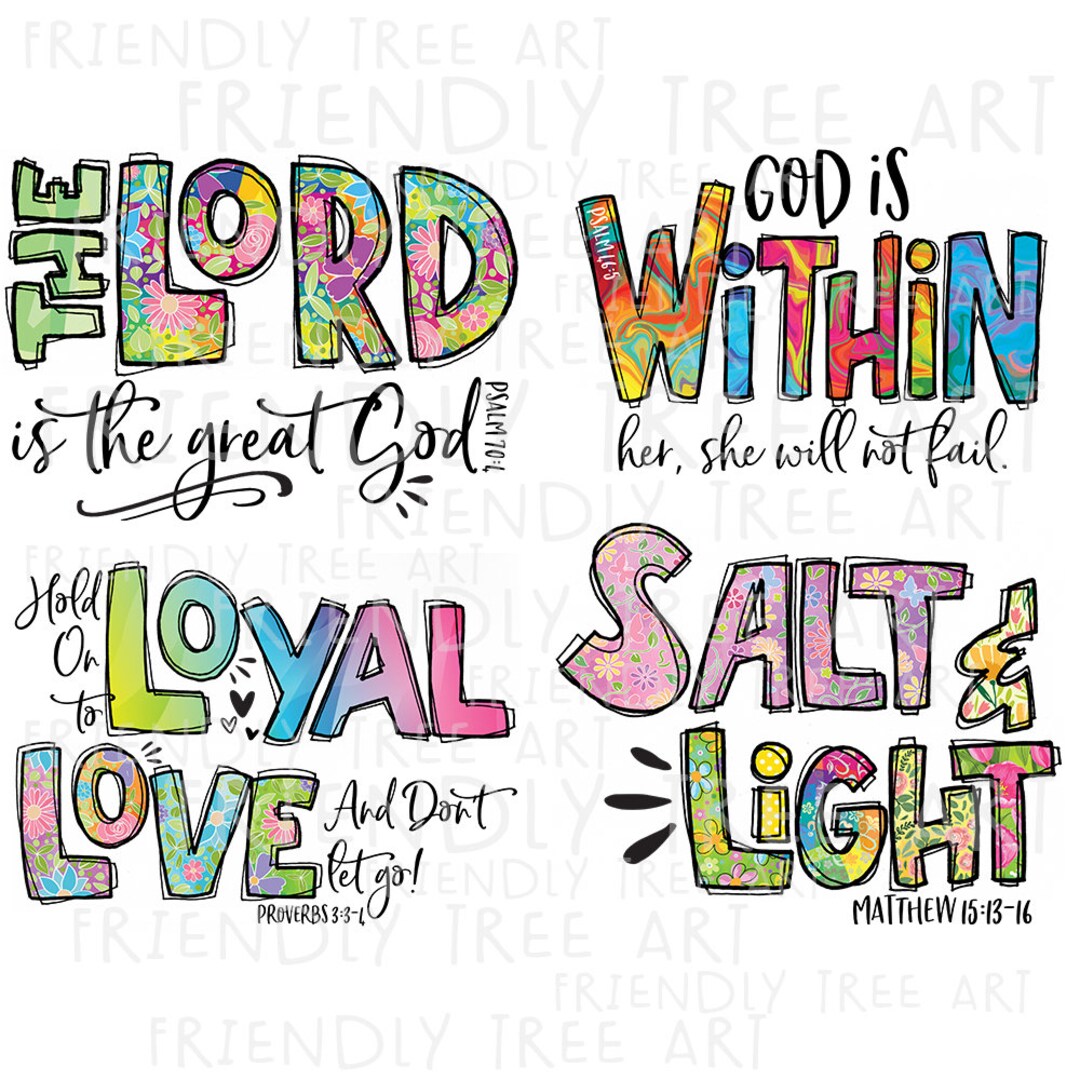 FRIENDLY TREE ART
FRIENDLY TREE ART
THE LORD
is the great God
PSALM 70:4
GOD IS
PSALM 46:5
WiTHiN
her, she will not fail.
FRIENDLY TREE ART
FRIENDLY TREE ART
Hold
On
to
LOYAL
LOVE
And Don't
let go!
PROVERBS 3:3-4
SALT &
LiGHT
MATTHEW 15:13-16
FRIENDLY TREE ART
FRIENDLY TREE ART
FRIENDLY TREE ART